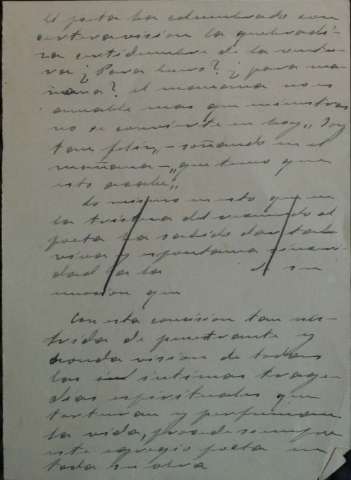 el poeta ha columbrado con
certera visión la quebradi-
za certidumbre de la ventu-
ra ¿Para luego? ¿para ma-
ñana? el manana no es
amable mas que mientras
no se convierte en hoy. Soy
tan feliz, - soñando en el
mañana -, que temo que
esto acabe".
Lo mismo en esto que en
la tristeza del
poeta ha sabido dar tal
viva y espontanea
dad a la
que
Con esta concision tan nu-
trida de penetrante y
honda vision de todas
las intimas trage-
dias espirituales que
torturan y perfuman
la vida, procede siempre
este egregio poeta en
toda su obra